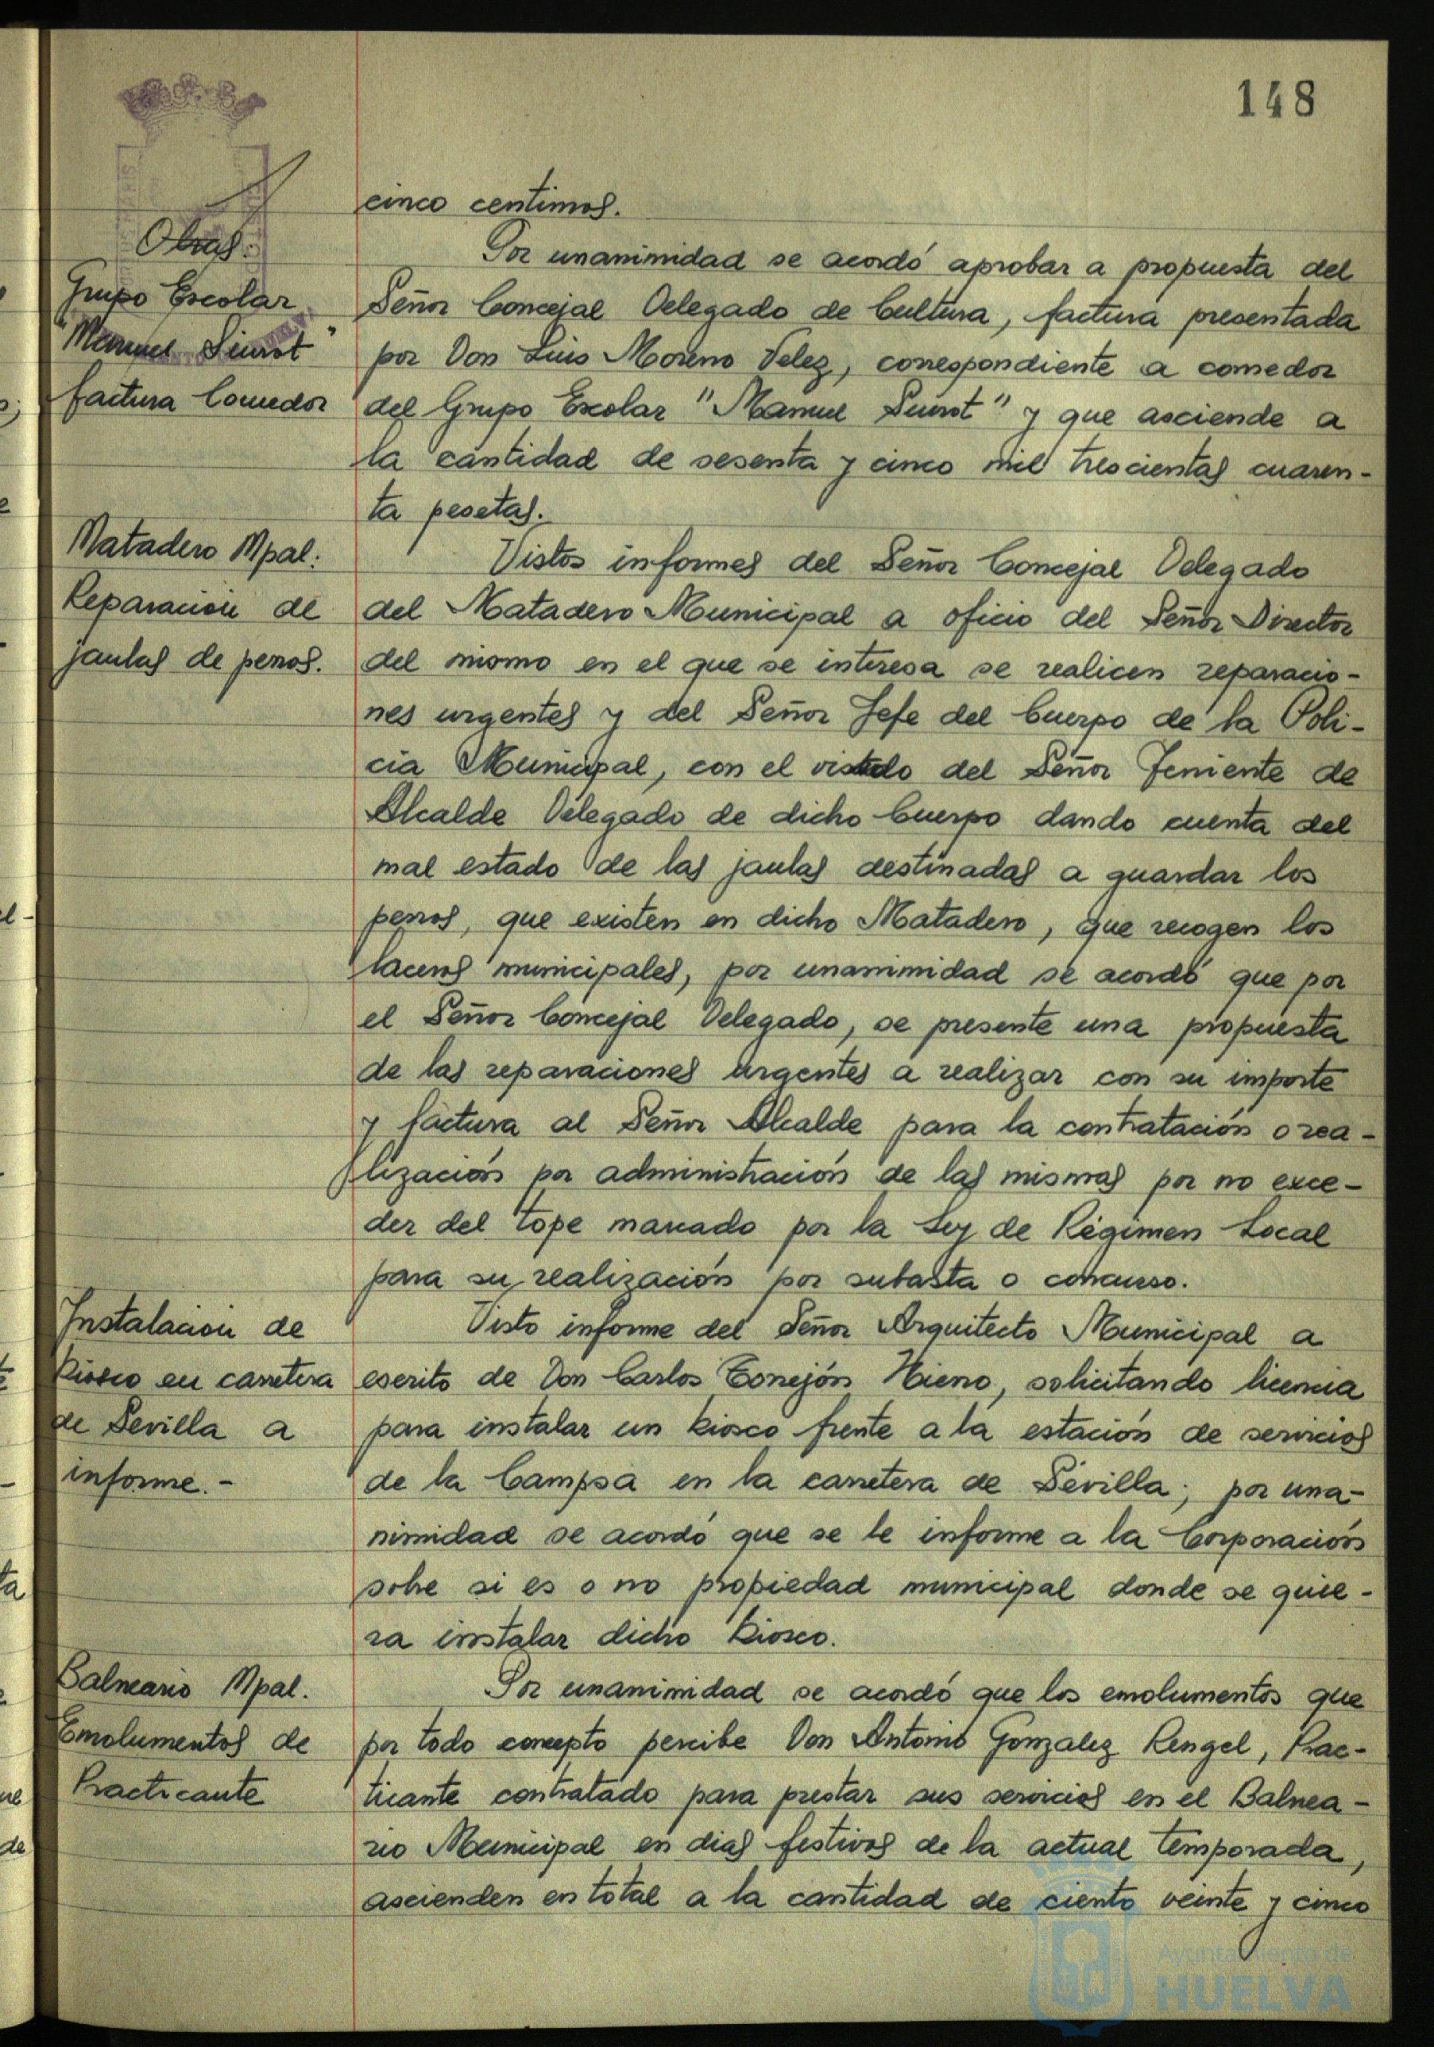 148
cinco centimos.
Obras:
Grupo Escolar
"Manuel Siurot"
factura Comedor
Por unanimidad se acordó aprobar a propuesta del
Señor Concejal Delegado de Cultura, factura presentada
por Don Luis Moreno Velez, correspondiente a comedor
del Grupo Escolar "Manuel Siurot" y que asciende a
la cantidad de sesenta y cinco mil trescientas cuaren-
ta pesetas.
Matadero Mpal.
Reparación de
jaulas de perros.
Vistos informes del Señor Concejal Delegado
del Matadero Municipal a oficio del Señor Director
del mismo en el que se interesa se realicen reparacio-
nes urgentes y del Señor Jefe del Cuerpo de la Poli-
cia Municipal, con el del Señor Teniente de
Alcalde Delegado de dicho Cuerpo dando cuenta del
mal estado de las jaulas destinadas a guardar los
perros, que existen en dicho Matadero, que recogen los
laceros municipales, por unanimidad se acordó que por
el Señor Concejal Delegado, se presente una propuesta
de las reparaciones urgentes a realizar con su importe
y factura al Señor Alcalde para la contratación o rea-
lización por administración de las mismas por no exce-
der del tope marcado por la Ley de Régimen Local
para su realización por subasta o concurso.
Instalación de
kiosco en carretera
de Sevilla a
informe.-
Visto informe del Señor Arquitecto Municipal a
escrito de Don Carlos Torrejón Hierro, solicitando licencia
para instalar un kiosco frente a la estación de servicios
de la Campsa en la carretera de Sevilla; por una-
nimidad se acordó que se le informe a la Corporación
sobre si es o no propiedad municipal donde se quie-
ra instalar dicho kiosco.
Balneario Mpal.
Emolumentos de
Practicante
Por unanimidad se acordó que los emolumentos que
por todo concepto percibe Don Antonio Gonzalez Rengel, Prac-
ticante contratado para prestar sus servicios en el Balnea-
rio Municipal en dias festivos de la actual temporada,
ascienden en total a la cantidad de ciento veinte y cinco
Ayuntamiento de
HUELVA